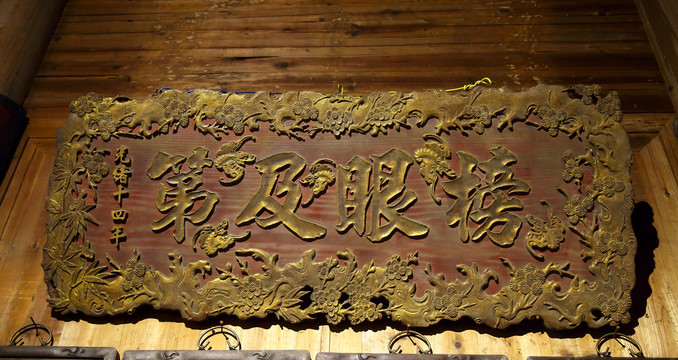 榜眼及第
光緒十四年